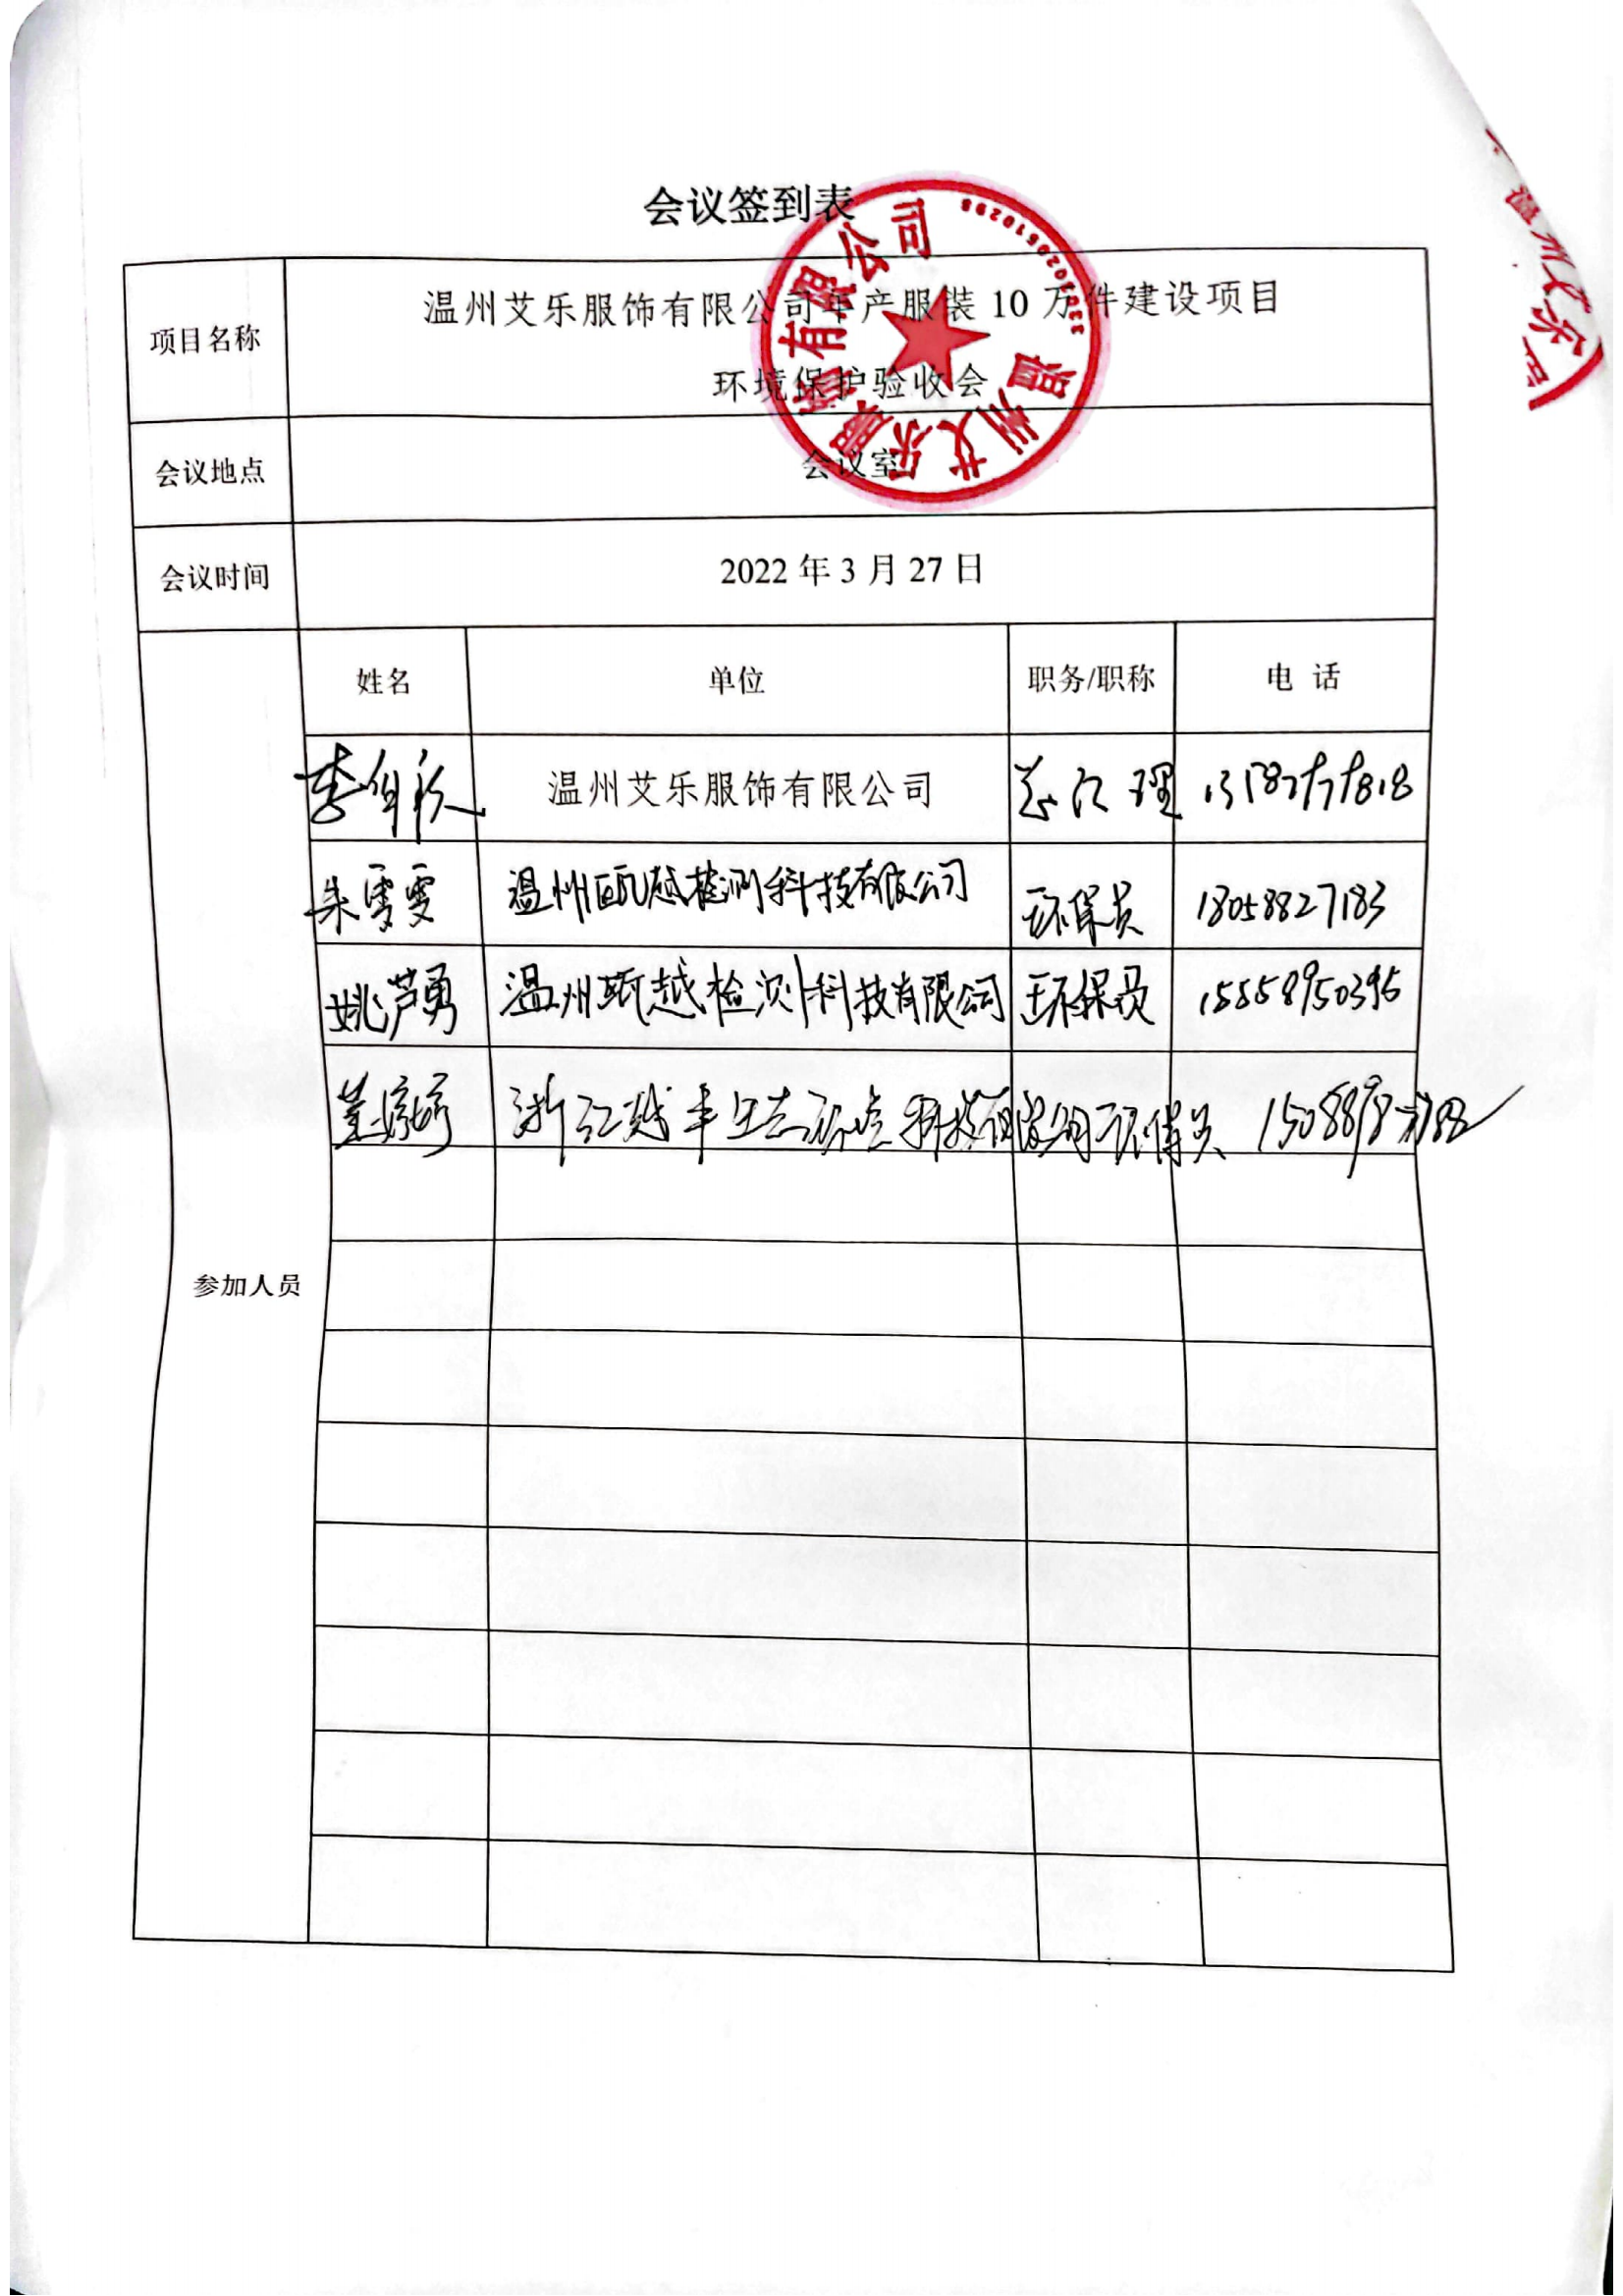 会议签到表
项目名称
温州艾乐服饰有限公司年产服装 10 万件建设项目
环境保护验收会
会议地点
会议室
会议时间
2022 年 3 月 27 日
姓名 单位 职务/职称 电 话
李 温州艾乐服饰有限公司 总经理
朱雯雯 温州瓯越检测科技有限公司 环保员 18058827183
姚芦勇 温州瓯越检测科技有限公司 环保员 15558950395
浙江 生态环境科技有限公司 环保员
参加人员
温州艾乐服饰有限公司
温州艾乐